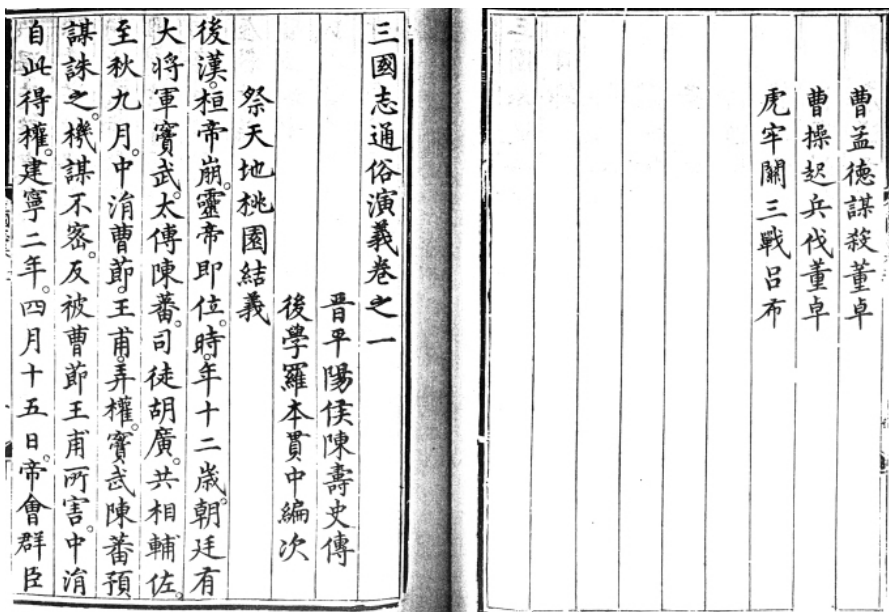 曹孟德謀殺董卓
曹操起兵伐董卓
虎牢關三戰呂布
三國志通俗演義卷之一
晉平陽侯陳壽史傳
後學羅本貫中編次
祭天地桃園結義
後漢。桓帝崩。靈帝即位。時年十二歲。朝廷有
大將軍竇武。太傅陳蕃。司徒胡廣。共相輔佐。
至秋九月。中涓曹節。王甫。弄權。竇武陳蕃預
謀誅之。機謀不密。反被曹節王甫所害。中涓
自此得權。建寧二年。四月十五日。帝會群臣